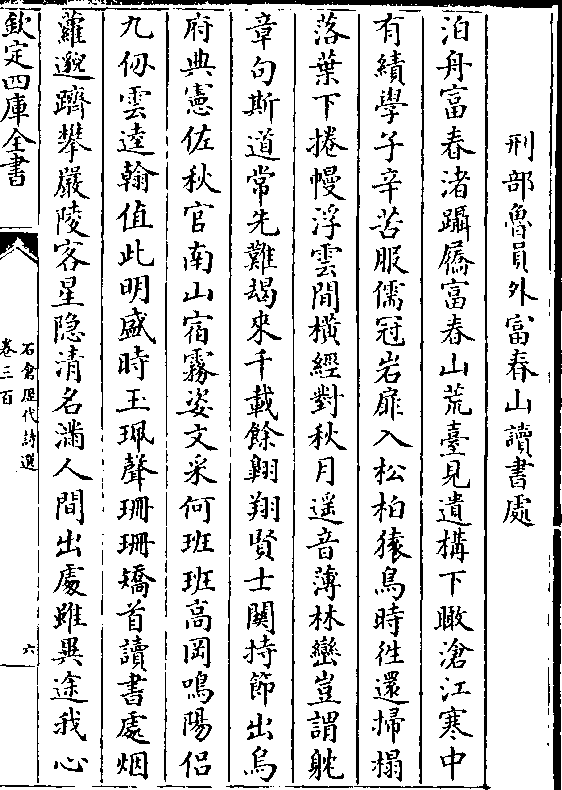 刑部魯員外富春山讀書處
泊舟富春渚躡屩富春山荒臺見遺構下瞰滄江寒中
有績學子辛苦服儒冠岩扉入松柏猿鳥時徃還掃榻
落葉下捲幔浮雲間橫經對秋月遥音薄林巒豈謂躭
章句斯道常先難朅來千載餘翺翔賢士関持節出烏
府典憲佐秋官南山宿霧姿文采何班班高岡鳴陽侣
九仭雲逵翰值此明盛時玉珮聲珊珊矯首讀書處烟
蘿邈躋攀嚴陵客星隐清名滿人間出處雖異途我心
欽定四庫全書
石倉歷代詩選
卷三百
六